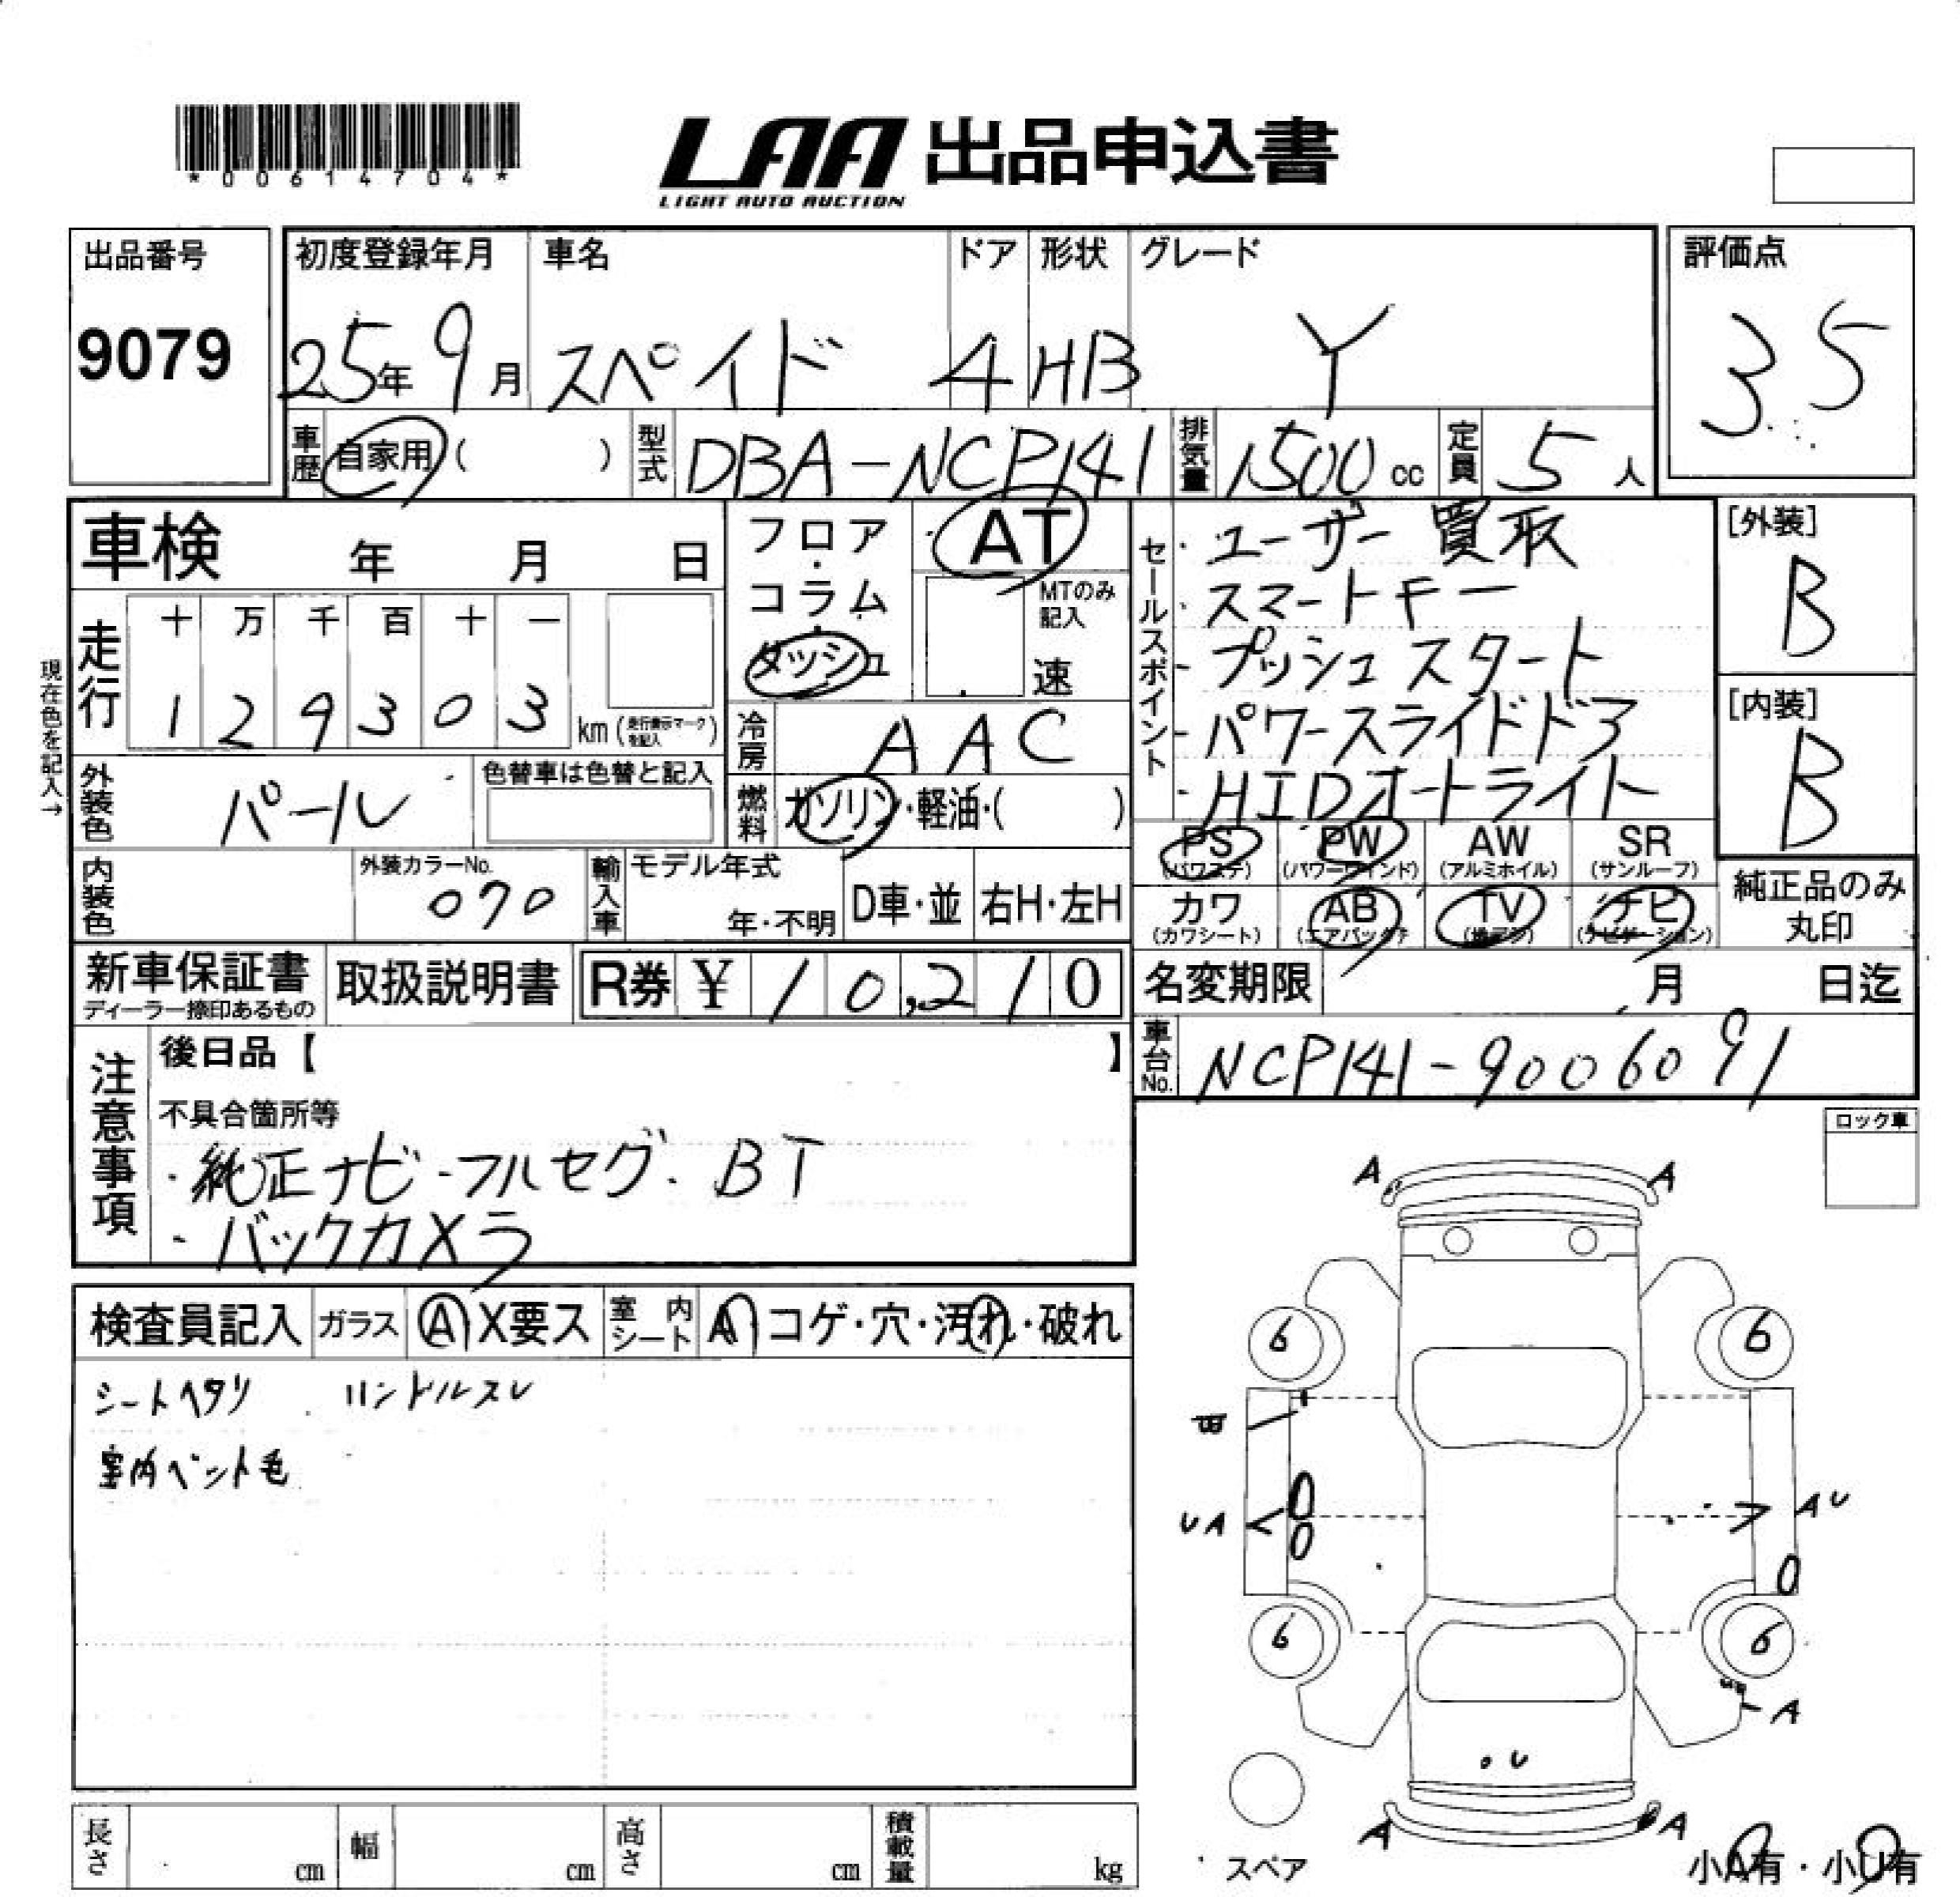 *00614704*
LAA 出品申込書
LIGHT AUTO AUCTION
出品番号 初度登録年月 車名 ドア 形状 グレード 評価点
9079 25年9月 スペイド 4 HB Y 35
車歴 自家用( ) 型式 DBA-NCP141 排気量 1500cc 定員 5人
車検 年 月 日
フロア・コラム・ダッシュ AT
MTのみ記入 速
セールスポイント
・ユーザー買取
・スマートキー
・プッシュスタート
・パワースライドドア
・HIDオートライト
[外装]
B
[内装]
B
現在色を記入→
走行 十 万 千 百 十 一
1 2 9 3 0 3 km(走行表示マークを記入)
冷房 AAC
外装色 パール 色替車は色替と記入
燃料 ガソリン・軽油・( )
PS AB PW AW SR
(パワステ) (パワーウインド) (アルミホイル) (サンルーフ)
カワ AB TV ナビ
(カワシート) (エアバック) (地デジ) (ナビゲーション)
純正品のみ丸印
内装色 外装カラーNo. 070 輸入車 モデル年式 年・不明 D車・並 右H・左H
新車保証書 ディーラー捺印あるもの 取扱説明書 R券 ¥ 10,210
名変期限 月 日迄
車台No. NCP141-9006091
注意事項
後日品【 】
不具合箇所等
・純正ナビ-フルセグ.BT
・バックカメラ
ロック車
検査員記入 ガラス A X要ス 室内シート A コゲ・穴・汚れ・破れ
シートヘタリ ハンドルスレ
室内ペット毛
A A
6 6
UA AU
6 6
A
U
A A
スペア
小A有・小U有
長さ cm 幅 cm 高さ cm 積載量 kg